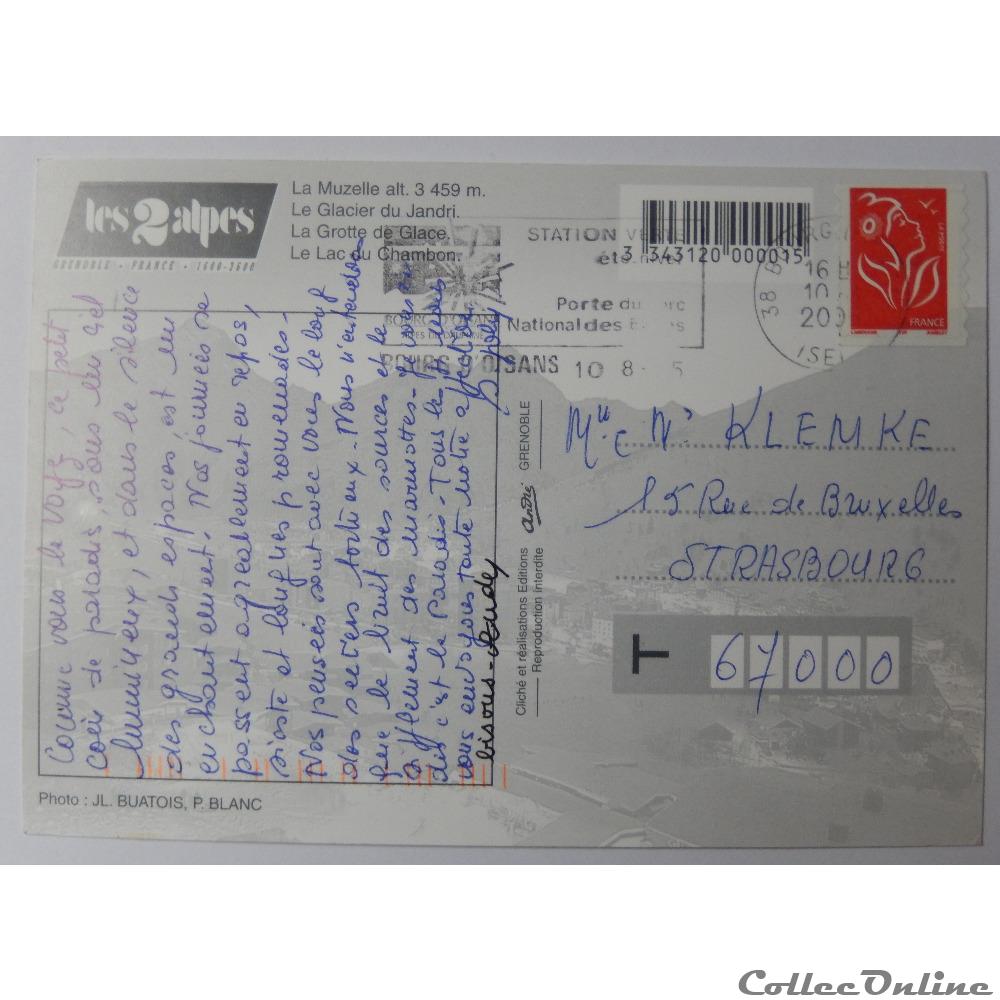 les 2 alpes
GRENOBLE • FRANCE • 1600-3600
La Muzelle alt. 3 459 m.
Le Glacier du Jandri.
La Grotte de Glace.
Le Lac du Chambon.
3 343120 000015
STATION VERTE
Porte du Parc
National des
BOURG D'OISANS
10 8 5
38
16 H
10
FRANCE
Comme vous le voyez, ce petit
coin de paradis, sous un ciel
lumineux, et dans le silence
des grands espaces, est un
enchantement. Nos journées se
passent agréablement en repos,
sieste et longues promenades.
Nos pensées sont avec vous le long
des sentiers tortueux. Nous n'entendons
que le bruit des sources et le
sifflement des marmottes. Je vous
dis c'est le Paradis. Tous les
vous envoyons toute notre affection
bisous
Cliché et réalisations Editions André GRENOBLE
Reproduction interdite
KLEMKE
15 Rue de Bruxelles
STRASBOURG
T 67000
Photo : JL. BUATOIS, P. BLANC
CollecOnline